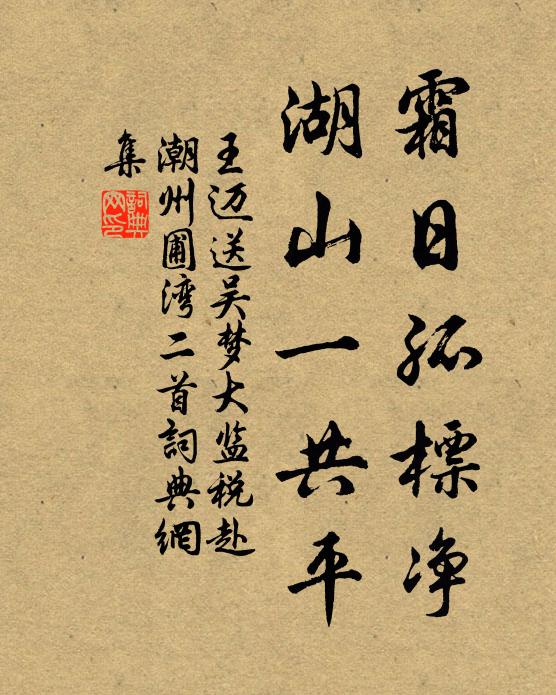 霜日孤標净
湖山一共平
王迈送吴梦大监税赴
潮州圃湾二首詞典網
集
詞典網印